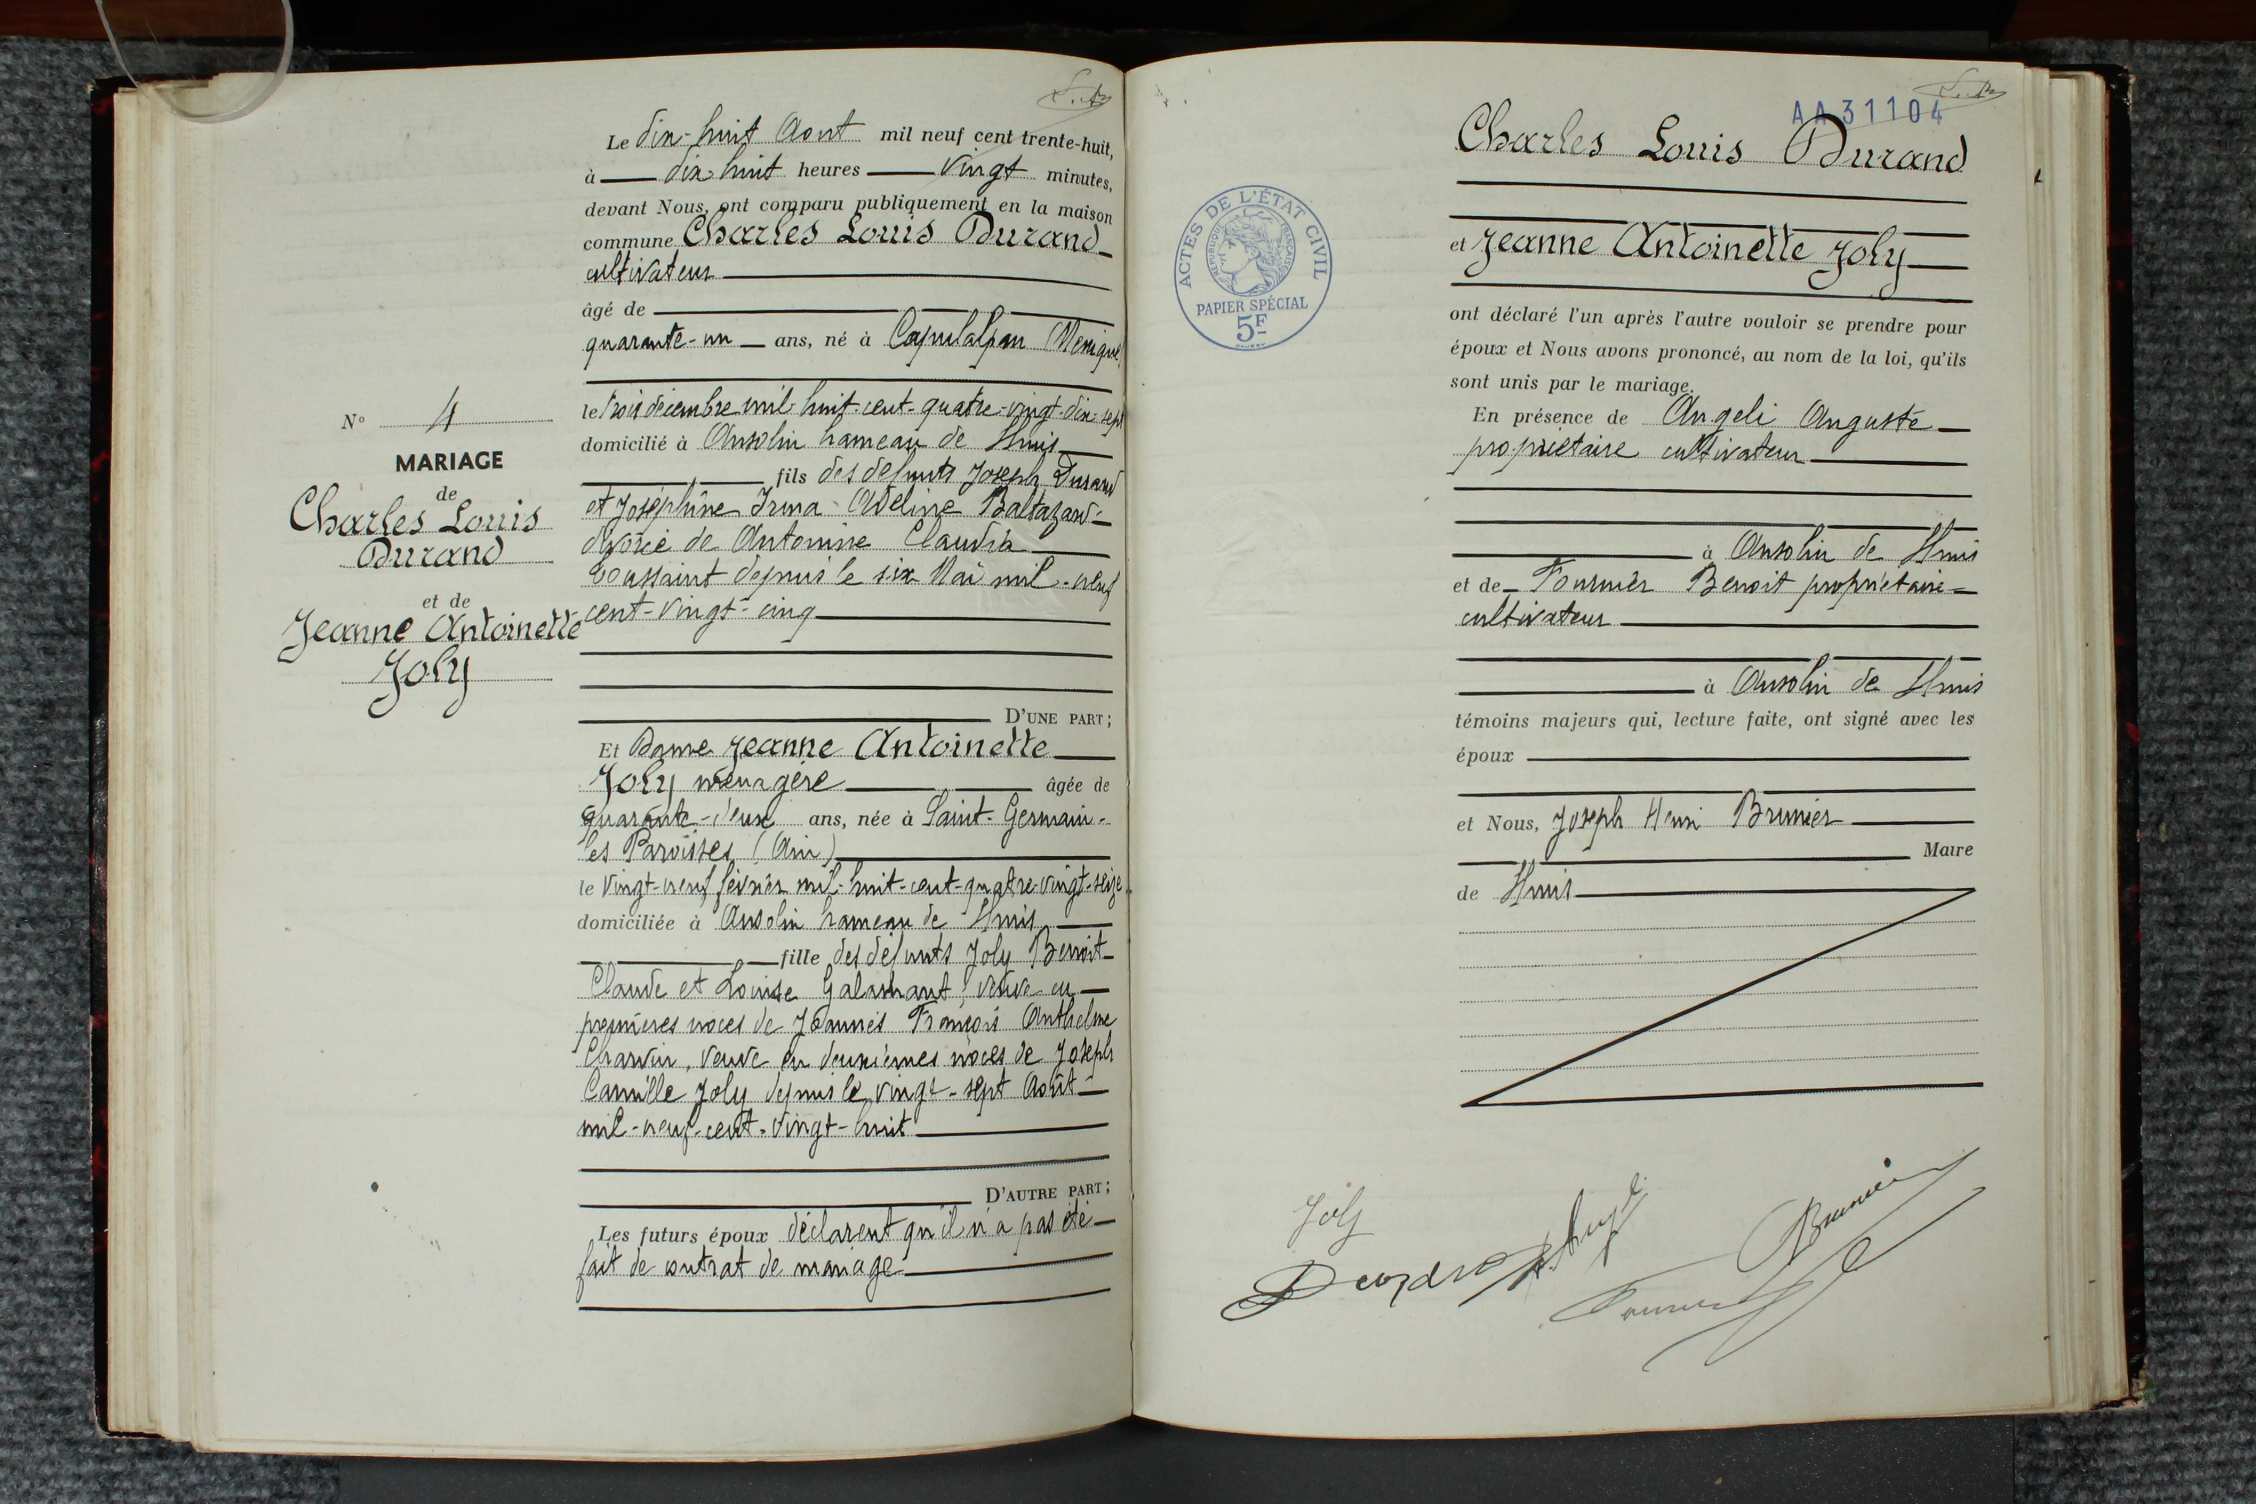 Le dix-huit Août mil neuf cent trente-huit,
à dix huit heures vingt minutes,
devant Nous, ont comparu publiquement en la maison
commune Charles Louis Durand
cultivateur
âgé de
quarante-un ans, né à Capulalpan (Mexique)
le trois décembre mil-huit-cent-quatre-vingt-dix-sept
domicilié à Ansolin hameau de
fils des défunts Joseph Durand
et Joséphine Irma-Adeline Baltazard
divorcé de Antonine Claudia
Toussaint depuis le six Mai mil-neuf
cent-vingt-cinq
N° 4
MARIAGE
de
Charles Louis
Durand
et de
Jeanne Antoinette
Joly
D'UNE PART;
Et Dame Jeanne Antoinette
Joly ménagère âgée de
quarante-deux ans, née à Saint-Germain-
les Paroisses (Ain)
le vingt-neuf février mil-huit-cent-quatre-vingt-seize
domiciliée à Ansolin hameau de
fille des défunts Joly Benoit-
Claude et Louise veuve en
premières noces de Joannès François Anthelme
Charvin, veuve en deuxièmes noces de Joseph
Camille Joly depuis le vingt-sept Août
mil-neuf-cent-vingt-huit
D'AUTRE PART;
Les futurs époux déclarent qu'il n'a pas été
fait de contrat de mariage
AA31104
Charles Louis Durand
et Jeanne Antoinette Joly
ACTES DE L'ÉTAT CIVIL
RÉPUBLIQUE FRANÇAISE
PAPIER SPÉCIAL
5F
ont déclaré l'un après l'autre vouloir se prendre pour
époux et Nous avons prononcé, au nom de la loi, qu'ils
sont unis par le mariage.
En présence de Angeli Auguste
propriétaire cultivateur
à Ansolin de
et de Fournier Benoit propriétaire-
cultivateur
à Ansolin de
témoins majeurs qui, lecture faite, ont signé avec les
époux
et Nous, Joseph Henri Brunier
Maire
de
Joly
Brunier